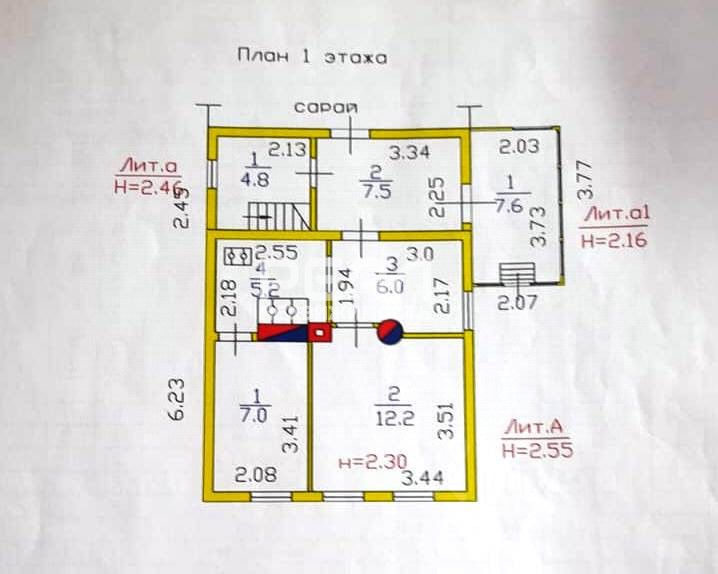 План 1 этажа
сарай
Лит.а
Н=2.46
2.45
1
4.8
2.13
2
7.5
3.34
2.25
1
7.6
2.03
3.73
3.77
Лит.а1
Н=2.16
2.07
2.55
4
5.2
2.18
1.94
3
6.0
3.0
2.17
6.23
1
7.0
3.41
2.08
2
12.2
3.51
н=2.30
3.44
Лит.А
Н=2.55